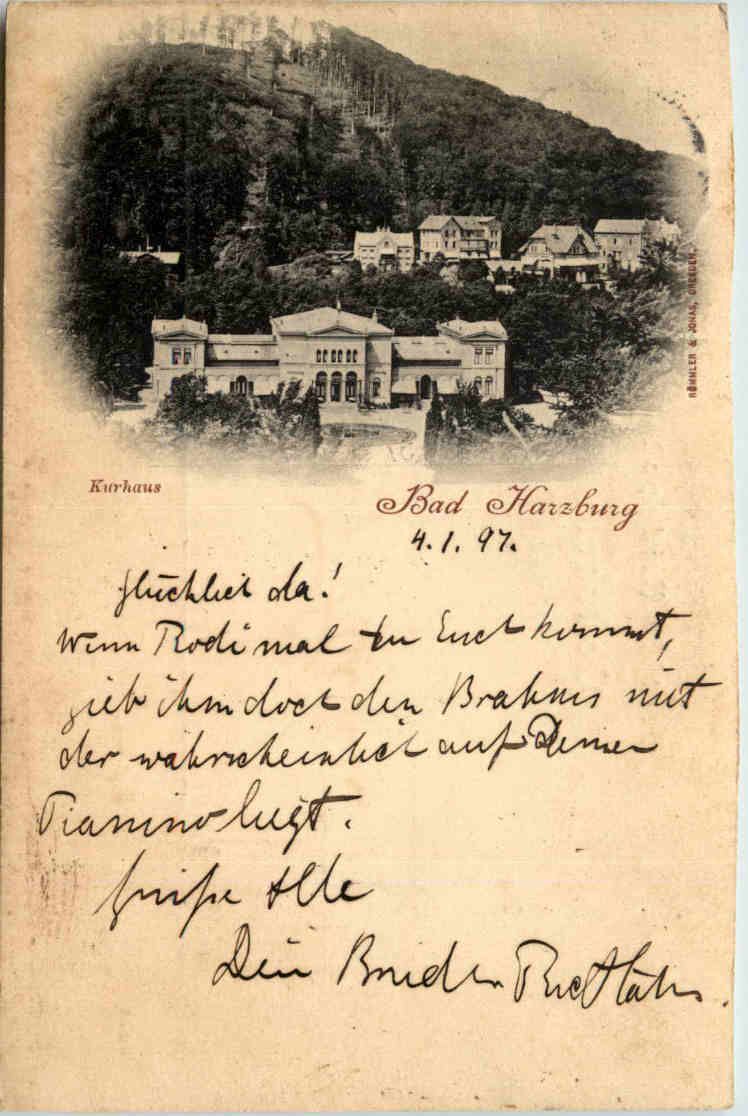 RÖMMLER & JONAS, DRESDEN.
Kurhaus
Bad Harzburg
4.1.97.
Glücklich da!
Wenn Rodi mal zu Euch kommt,
gieb ihm doch den Brahms mit
der wahrscheinlich auf Deinem
Pianino liegt.
Grüße Alle
Dein Bruder